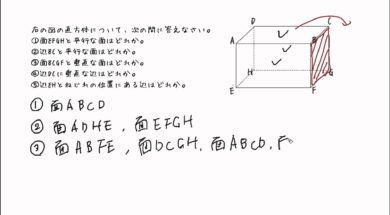 右の図の直方体について、次の問に答えなさい。
①面EFGHと平行な面はどれか。
②辺BCと平行な面はどれか。
③面BCGFと垂直な面はどれか。
④辺DCに垂直な辺はどれか。
⑤辺EHとねじれの位置にある辺はどれか。
D C
A B
H G
E F
① 面ABCD
② 面ADHE, 面EFGH
③ 面ABFE, 面DCGH, 面ABCD,